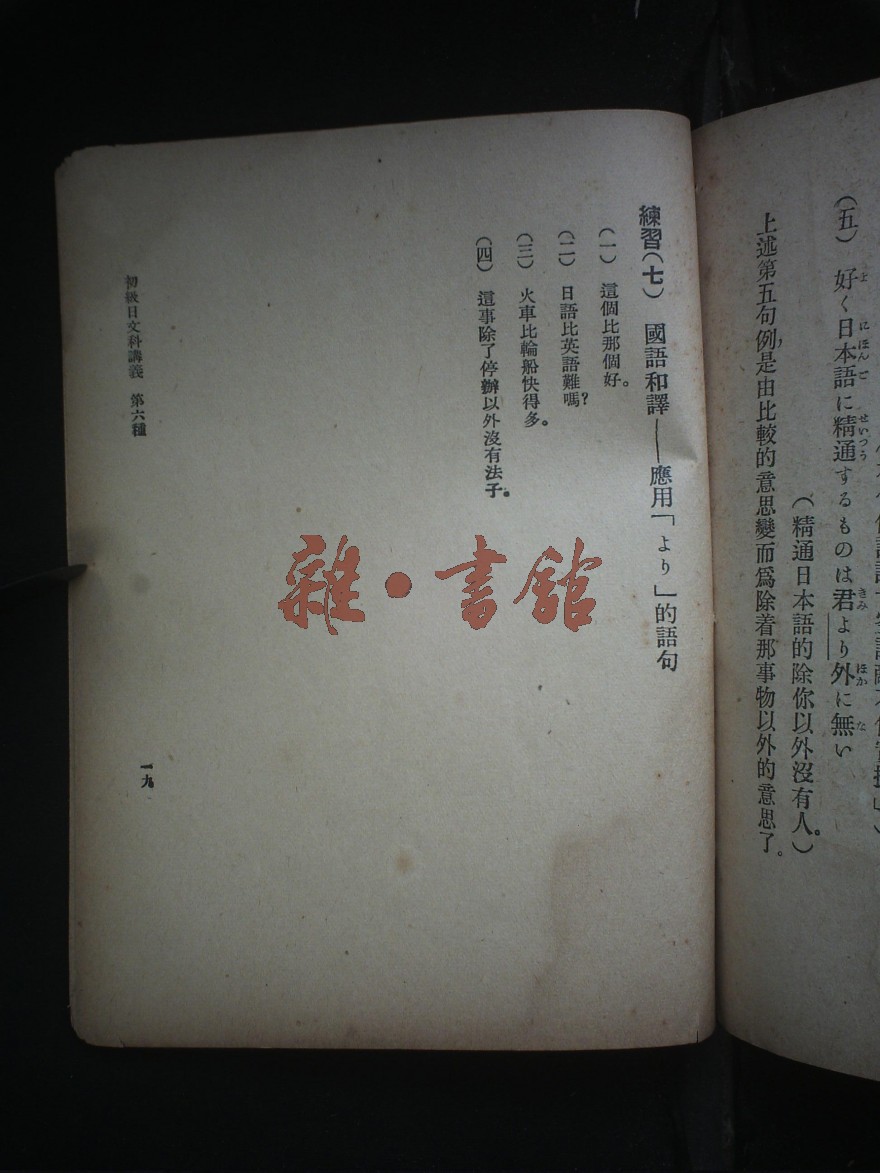 (五) 好く日本語に精通するものは君より外に無い
(精通日本語的除你以外沒有人。)
上述第五句例,是由比較的意思變而爲除着那事物以外的意思了。
練習(七) 國語和譯——應用「より」的語句
(一) 這個比那個好。
(二) 日語比英語難嗎?
(三) 火車比輪船快得多。
(四) 這事除了停辦以外沒有法子。
初級日文科講義 第六種
一九
雜·書館